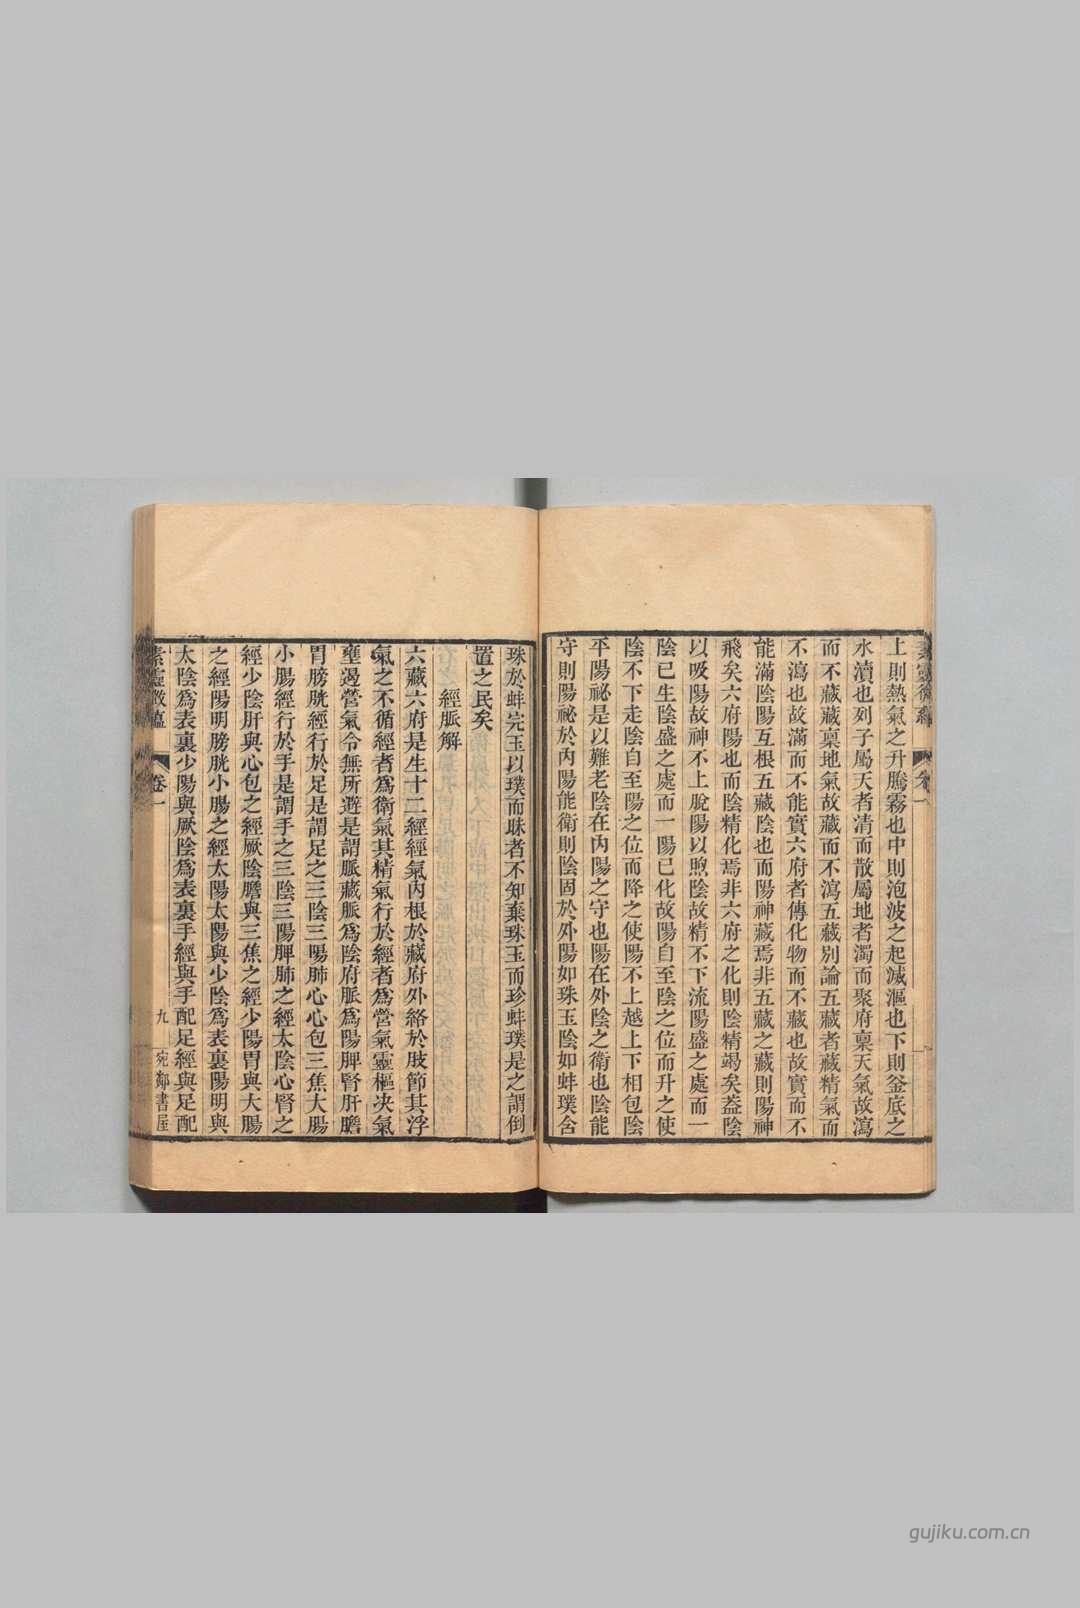 上則熱氣之升騰霧也中則泡波之起滅漚也下則釜底之
水瀆也列子屬天者清而散屬地者濁而聚府稟天氣故瀉
而不藏藏稟地氣故藏而不瀉五藏別論五藏者藏精氣而
不瀉也故滿而不能實六府者傳化物而不藏也故實而不
能滿陰陽互根五藏陰也而陽神藏焉非五藏之藏則陽神
飛矣六府陽也而陰精化焉非六府之化則陰精竭矣蓋陰
以吸陽故神不上脫陽以煦陰故精不下流陽盛之處而一
陰已生陰盛之處而一陽已化故陽自至陰之位而升之使
陰不下走陰自至陽之位而降之使陽不上越上下相包陰
平陽祕是以難老陰在內陽之守也陽在外陰之衛也陰能
守則陽祕於內陽能衛則陰固於外陽如珠玉陰如蚌璞含
珠於蚌完玉以璞而昧者不知棄珠玉而珍蚌璞是之謂倒
置之民矣
經脈解
六藏六府是生十二經經氣內根於藏府外絡於肢節其浮
氣之不循經者爲衛氣其精氣行於經者爲營氣靈樞決氣
壅遏營氣令無所避是謂脈藏脈爲陰府脈爲陽脾腎肝膽
胃膀胱經行於足是謂足之三陰三陽肺心心包三焦大腸
小腸經行於手是謂手之三陰三陽脾肺之經太陰心腎之
經少陰肝與心包之經厥陰膽與三焦之經少陽胃與大腸
之經陽明膀胱小腸之經太陽太陽與少陰爲表裏陽明與
太陰爲表裏少陽與厥陰爲表裏手經與手配足經與足配
素靈微蘊 卷一 九 宛鄰書屋
gujiku.com.cn